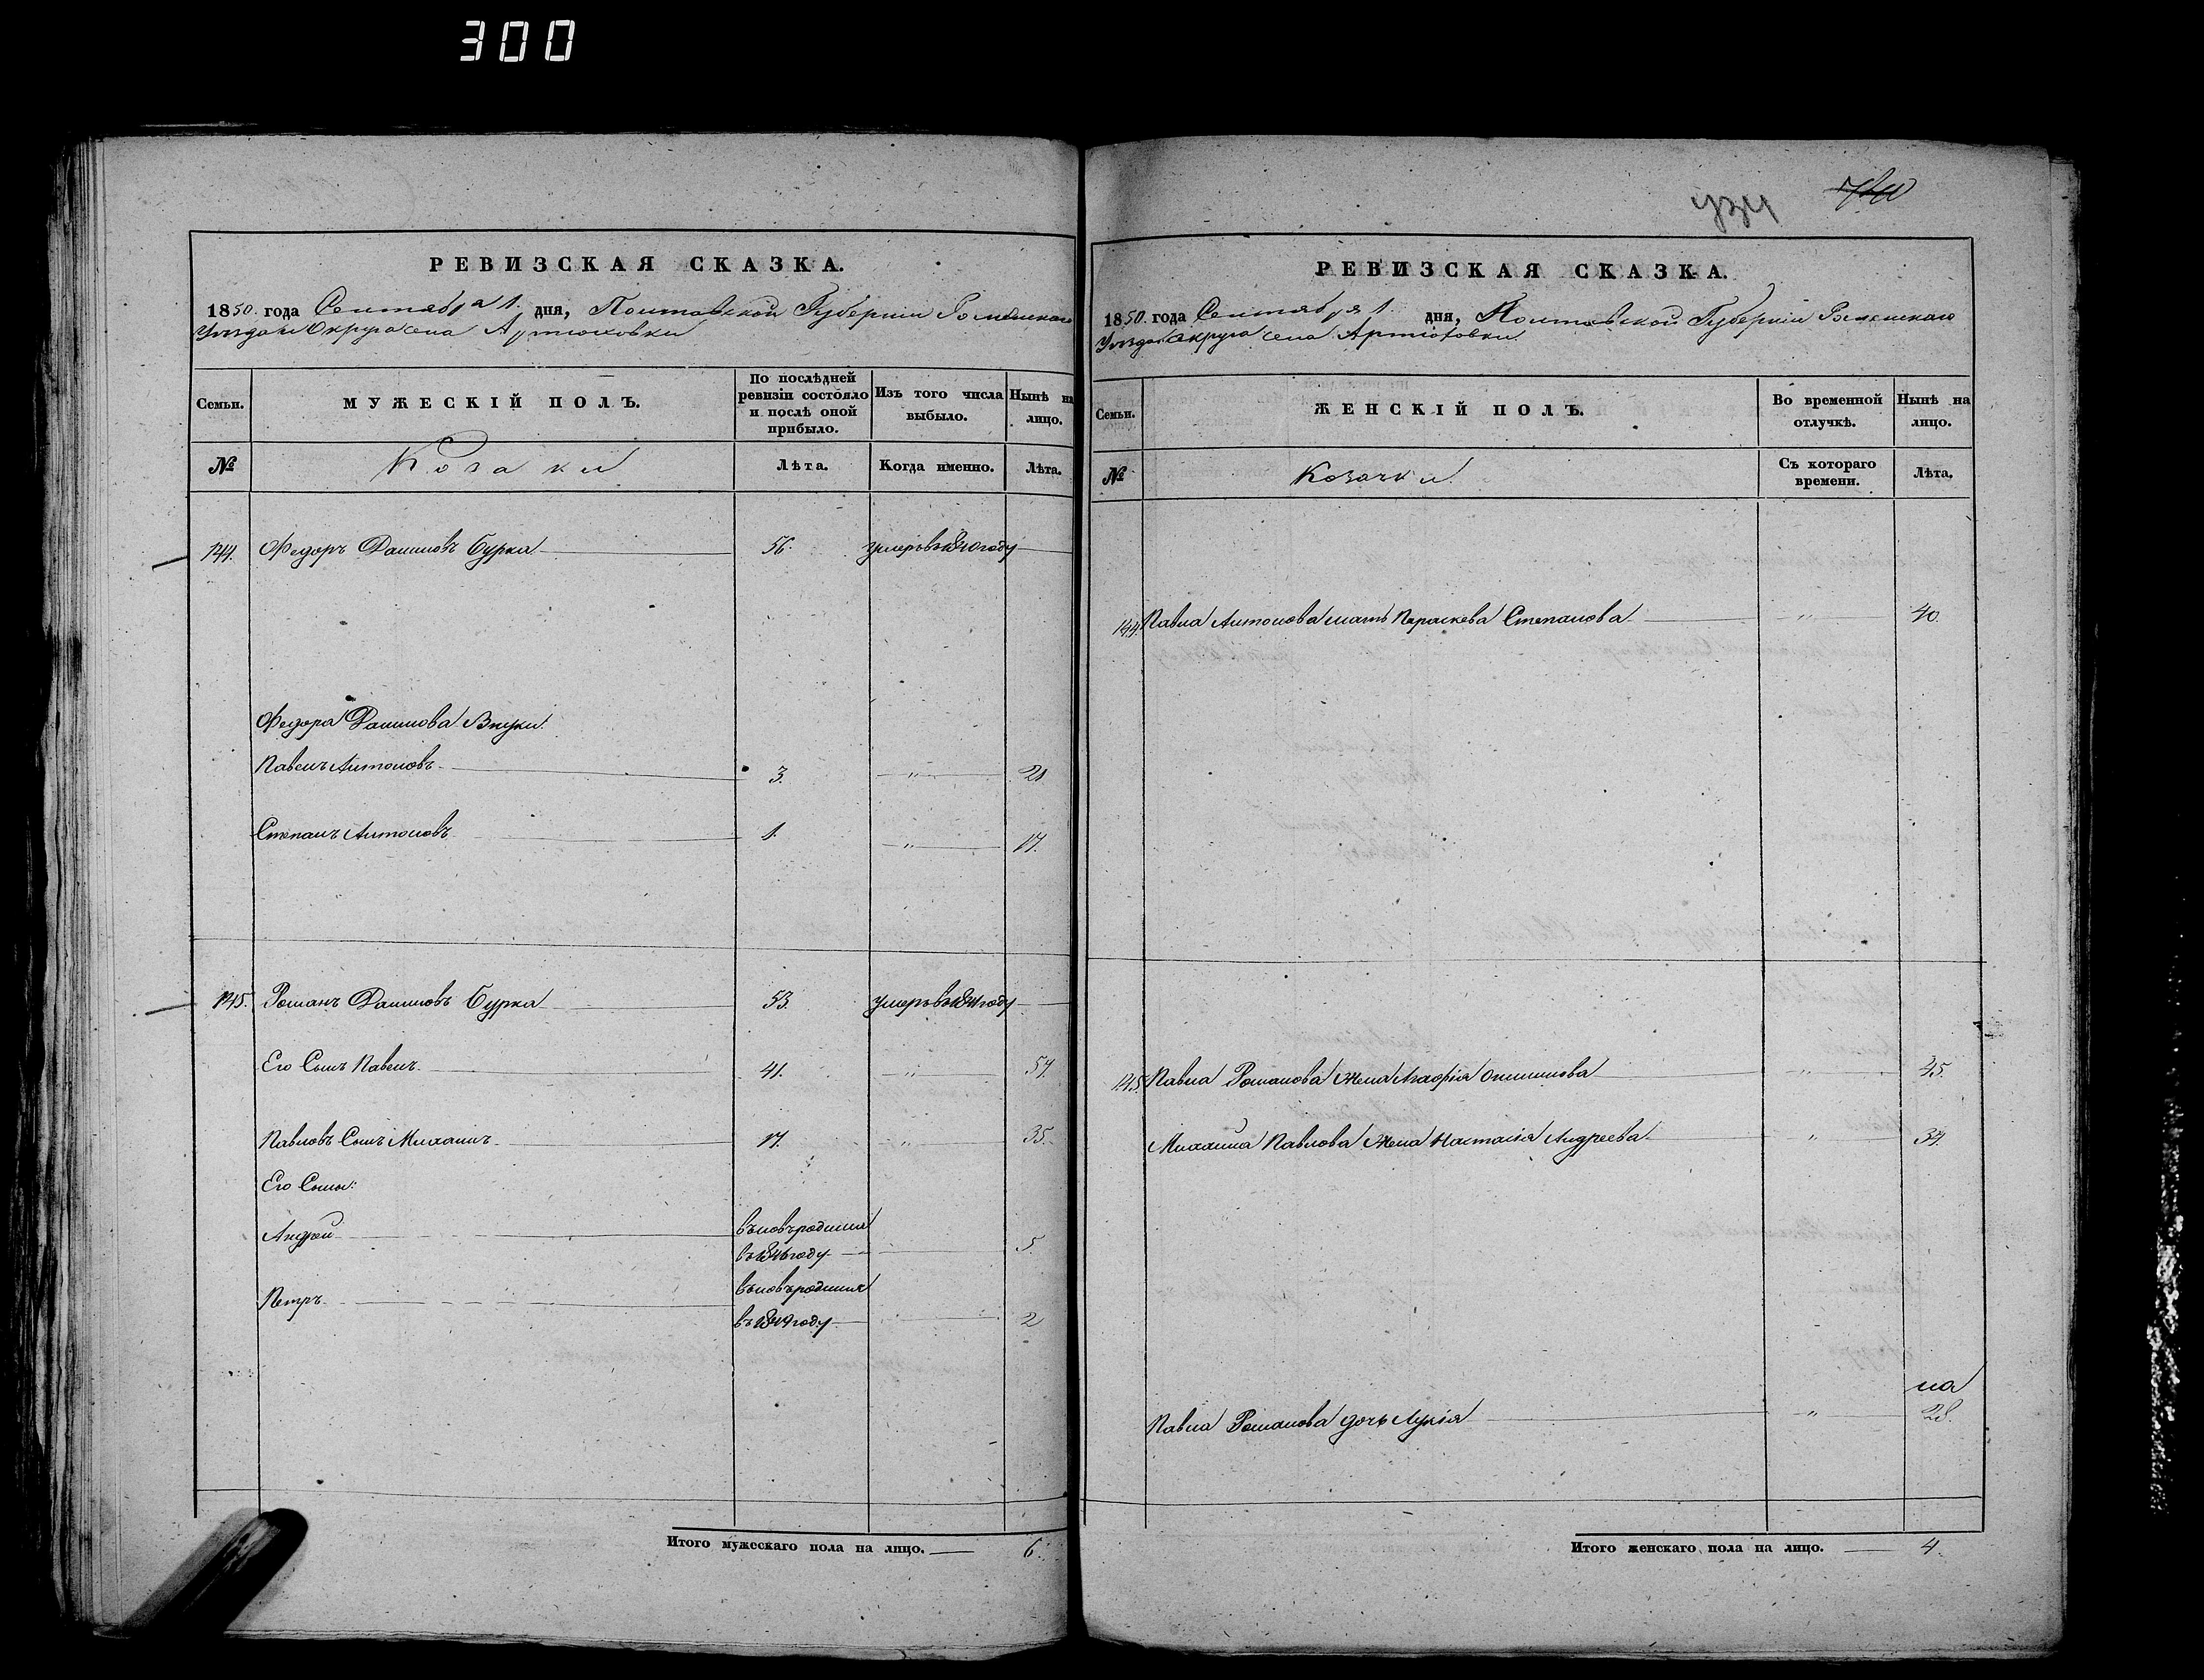 300
РЕВИЗСКАЯ СКАЗКА.
1850. года Сентября 1. дня, Полтавской Губерніи Роменскаго
Уезда и Округа села Артюховки
Семьи.
МУЖЕСКІЙ ПОЛЪ.
По послѣдней ревизіи состояло и послѣ оной прибыло.
Изъ того числа выбыло.
Нынѣ на лицо.
№
Козаки
Лѣта.
Когда именно.
Лѣта.
144. Федоръ Даниловъ Бурка 56. умеръ въ 1840 году
Федора Данилова Внуки.
Павелъ Антоновъ 3. " 21
Степанъ Антоновъ 1. " 17.
145. Романъ Даниловъ Бурка 53. умеръ въ 1841 году
Его Сынъ Павелъ 41. " 57.
Павловъ Сынъ Михаилъ 17. " 35.
Его Сыны:
Андрей вновъродился
въ 1846 году 5.
Петръ вновъродился
въ 1849 году 2
Итого мужескаго пола на лицо. 6.
734 740
РЕВИЗСКАЯ СКАЗКА.
1850. года Сентября 1. дня, Полтавской Губерніи Роменскаго
Уезда и Округа села Артюховки
Семьи.
ЖЕНСКІЙ ПОЛЪ.
Во временной отлучкѣ.
Нынѣ на лицо.
№
Козачки.
Съ котораго времени.
Лѣта.
144. Павла Антонова мать Параскева Степанова " 40.
145. Павла Романова Жена Агафія " 45.
Михаила Павлова Жена Настасія Андреева " 34.
Павла Романова дочь Лукія " 28.
Итого женскаго пола на лицо. 4.